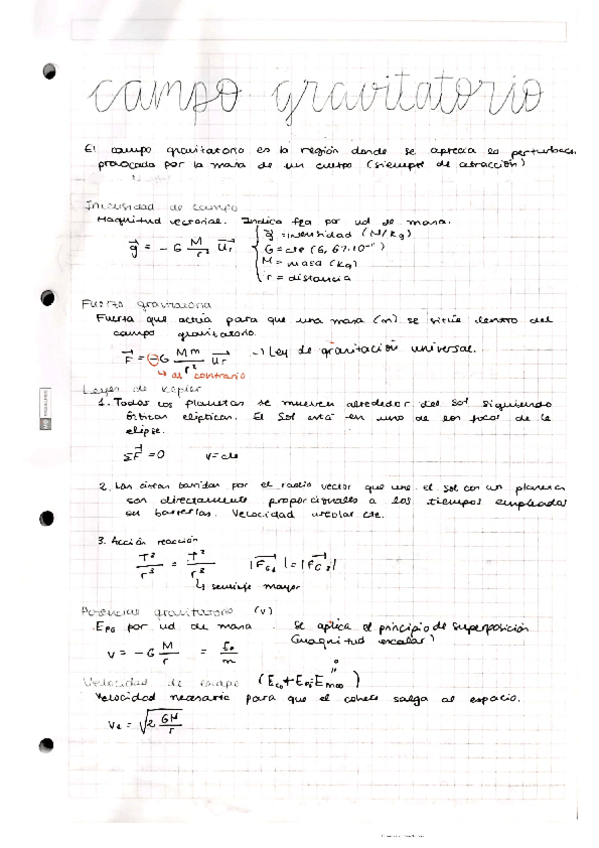 campo gravitatorio
El campo gravitatorio es la región donde se aprecia la perturbac.
provocada por la masa de un cuerpo (siempre de atracción)
Intensidad de campo
Magnitud vectorial. Indica fza por ud de masa.
g⃗ = - G M/r² u⃗r
g⃗ = intensidad (N/kg)
G = cte (6,67·10⁻¹¹)
M = masa (kg)
r = distancia
Fuerza gravitatoria
Fuerza que actúa para que una masa (m) se sitúe dentro del
campo gravitatorio.
F⃗ = - G Mm/r² u⃗r → Ley de gravitación universal.
↳ al contrario
Leyes de Kepler
1. Todos los planetas se mueven alrededor del Sol siguiendo
órbitas elípticas. El Sol está en uno de los focos de la
elipse.
ΣF⃗ = 0 v = cte
2. Las áreas barridas por el radio vector que une el Sol con un planeta
son directamente proporcionales a los tiempos empleados
en barrerlas. Velocidad areolar cte.
3. Acción reacción
T²/r³ = T²/r³ |F⃗G| = |F⃗G|
↳ semieje mayor
Potencial gravitatorio (V)
EPG por ud de masa. Se aplica el principio de superposición
(magnitud escalar)
V = - G M/r = Ep/m
Velocidad de escape
Velocidad necesaria para que el cohete salga al espacio.
Ve = √(2 GM/r)